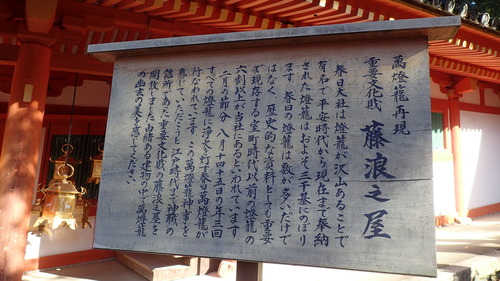 萬燈籠再現
重要文化財 藤浪之屋
春日大社は燈籠が沢山あることで
有名で平安時代から現在まで奉納
された燈籠はおよそ三千基にのぼり
ます 春日の燈籠は数が多いだけで
はなく、歴史的な資料としても重要
で現存する室町時代以前の燈籠の
六割以上が当社にあるといわれています
二月の節分 八月十四十五日の年三回
すべての燈籠に浄火を灯す春日萬燈籠が
行なわれています この萬燈籠神事を
感じていただこうと江戸時代まで神職の
詰所であった重要文化財の藤浪之屋を
開放しました 由緒ある建物の中で萬燈籠
の幽玄の美を感じてください